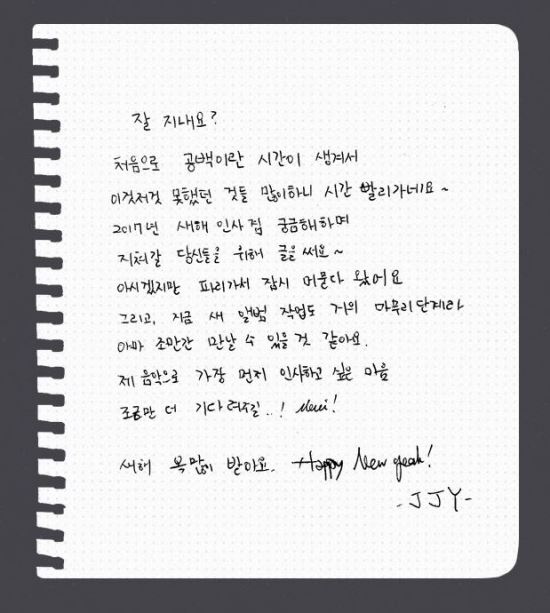 잘 지내요?
처음으로 공백이란 시간이 생겨서
이것저것 못했던 것들 많이하니 시간 빨리가네요~
2017년 새해 인사 겸 궁금해하며
지쳐갈 당신들을 위해 글을 써요~
아시겠지만 파리가서 잠시 머물다 왔어요
그리고, 지금 새 앨범 작업도 거의 마무리단계라
아마 조만간 만날 수 있을 것 같아요.
제 음악으로 가장 먼저 인사하고 싶은 마음
조금만 더 기다려주길..! Merci!
새해 복많이 받아요. Happy New yeah!
-JJY-